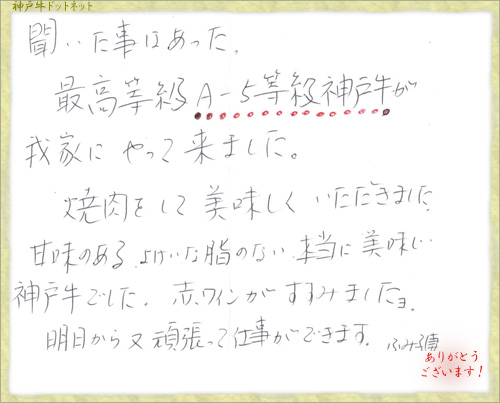 神戸牛ドットネット
聞いた事はあった。
最高等級A-5等級神戸牛が
我家にやって来ました。
焼肉をして美味しくいただきました
甘味のある、よけいな脂のない、本当に美味しい
神戸牛でした。赤ワインがすすみましたョ。
明日から又頑張って仕事ができます。
ありがとう
ございます！